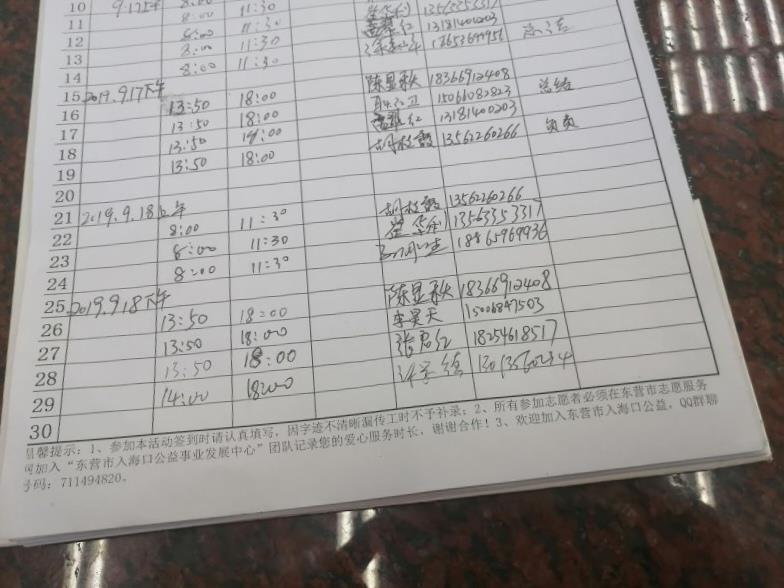 10 9.17上午 8:00 11:30
11 8:00 11:30 13563353317
12 8:00 11:30 13181400203
13 8:00 11:30
14
15 2019.9.17下午 13:50 18:00 陈显秋 18366912408
16 13:50 18:00 15066082823 总结
17 13:50 18:00 13181400203
18 13:50 18:00 胡枝霞 13562260266 负责
19
20
21 2019.9.18上午 8:00 11:30 胡枝霞 13562260266
22 8:00 11:30 崔华利 13563353317
23 8:00 11:30 18865969936
24
25 2019.9.18下午 13:50 18:00 陈显秋 18366912408
26 13:50 18:00 李昊天 15006847503
27 13:50 18:00 张君红 18254618517
28 14:00 18:00
29
30
温馨提示:1、参加本活动签到时请认真填写,因字迹不清晰漏传工时不予补录;2、所有参加志愿者必须在东营市志愿服务
网加入“东营市入海口公益事业发展中心”团队记录您的爱心服务时长,谢谢合作!3、欢迎加入东营市入海口公益,QQ群聊
号码:711494820。